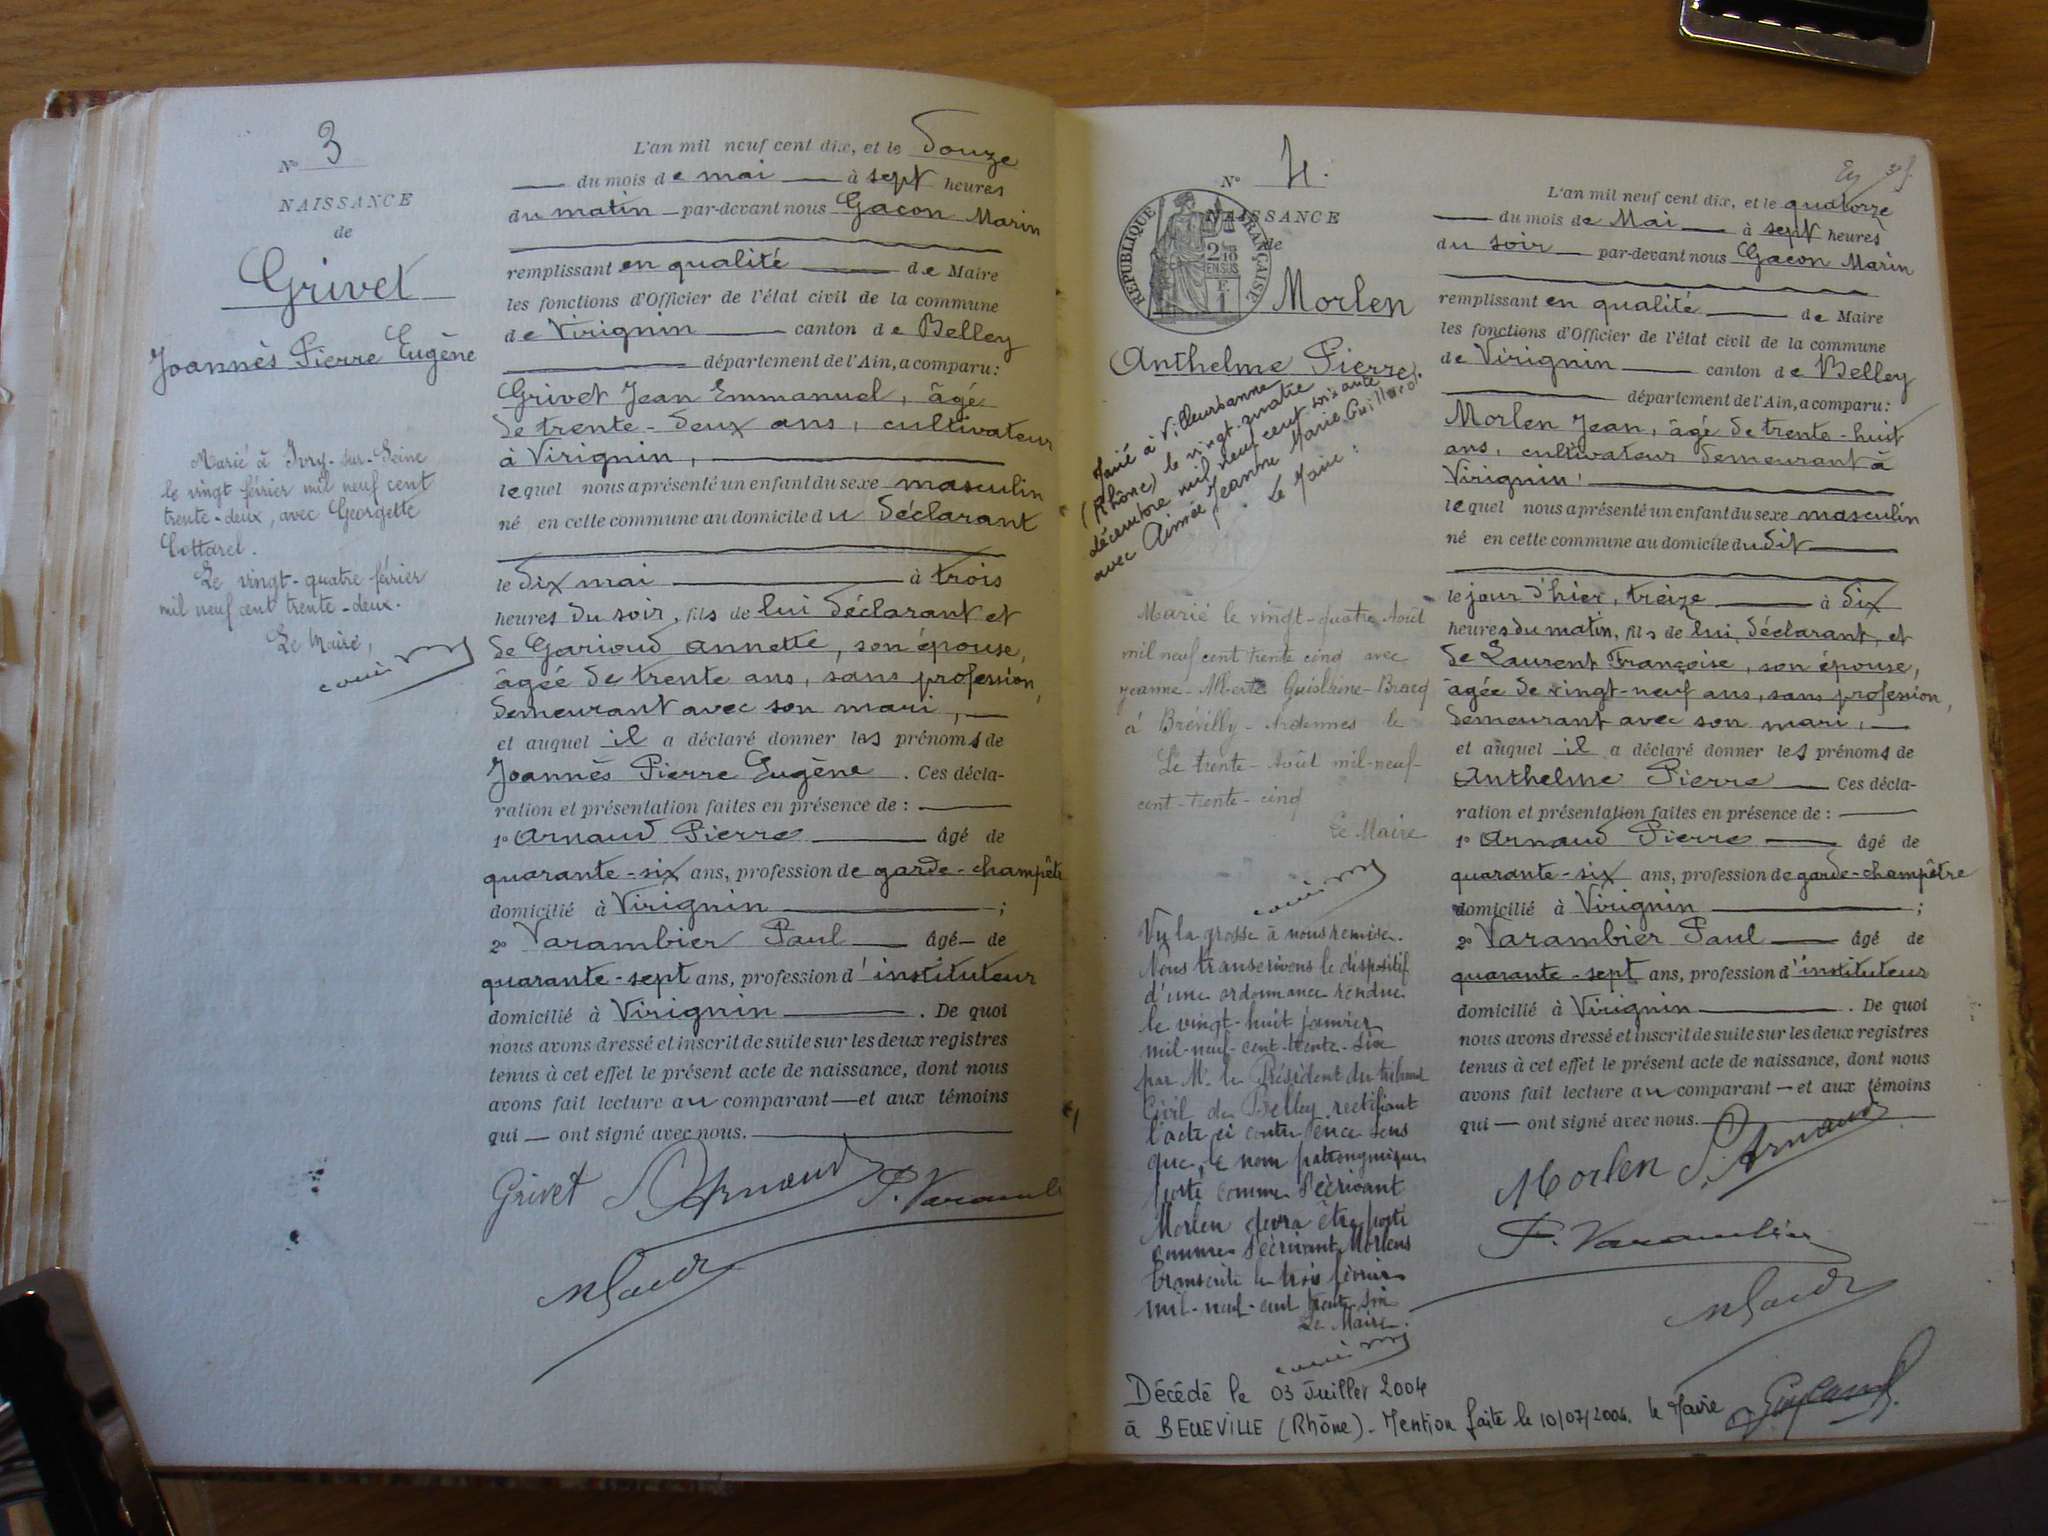 N° 3
NAISSANCE
de
Grivet
Joannès Pierre Eugène
Marié à Ivry-sur-Seine
le vingt février mil neuf cent
trente-deux, avec Georgette
Cottarel.
Le vingt-quatre février
mil neuf cent trente-deux.
Le Maire,
L'an mil neuf cent dix, et le Douze
du mois de mai à sept heures
du matin par-devant nous Gacon Marin
remplissant en qualité de Maire
les fonctions d'Officier de l'état civil de la commune
de Virignin canton de Belley
département de l'Ain, a comparu:
Grivet Jean Emmanuel, âgé
de trente-deux ans, cultivateur
à Virignin,
lequel nous a présenté un enfant du sexe masculin
né en cette commune au domicile du déclarant
le dix mai à trois
heures du soir, fils de lui déclarant et
de Garioud Annette, son épouse,
âgée de trente ans, sans profession,
demeurant avec son mari,
et auquel il a déclaré donner les prénoms de
Joannès Pierre Eugène. Ces décla-
ration et présentation faites en présence de :
1° Arnaud Pierre âgé de
quarante-six ans, profession de garde-champêtre
domicilié à Virignin ;
2° Varambier Paul âgé de
quarante-sept ans, profession d'instituteur
domicilié à Virignin . De quoi
nous avons dressé et inscrit de suite sur les deux registres
tenus à cet effet le présent acte de naissance, dont nous
avons fait lecture au comparant — et aux témoins
qui — ont signé avec nous.
Grivet P. Arnaud P. Varambier
N° 4.
NAISSANCE
de
RÉPUBLIQUE FRANÇAISE
2/10 EN SUS
1 F.
Morlen
Anthelme Pierre.
Marié à Villeurbanne
(Rhône) le vingt-quatre
décembre mil neuf cent soixante
avec Aimée Jeanne Marie Guillard.
Le Maire :
Marié le vingt-quatre Août
mil neuf cent trente cinq avec
Jeanne-Alberte Guislaine-Bracq
à Brévilly-Ardennes le
Le trente-Août mil-neuf-
cent-trente-cinq
Le Maire
Vu la grosse à nous remise.
Nous transcrivons le dispositif
d'une ordonnance rendue
le vingt-huit janvier
mil-neuf-cent-trente-six
par Mr le Président du tribunal
Civil de Belley rectifiant
l'acte ci contre en ce sens
que, le nom patronymique
porté comme s'écrivant
Morlen devra être porté
comme s'écrivant Morlens
transcrite le trois février
mil-neuf-cent trente six
Le Maire.
Décédé le 03 Juillet 2004
à BELLEVILLE (Rhône). Mention faite le 10/07/2004. le Maire
L'an mil neuf cent dix, et le quatorze
du mois de Mai à sept heures
du soir par-devant nous Gacon Marin
remplissant en qualité de Maire
les fonctions d'Officier de l'état civil de la commune
de Virignin canton de Belley
département de l'Ain, a comparu:
Morlen Jean, âgé de trente-huit
ans, cultivateur demeurant à
Virignin,
lequel nous a présenté un enfant du sexe masculin
né en cette commune au domicile dudit
le jour d'hier, treize à dix
heures du matin, fils de lui déclarant, et
de Laurent Françoise, son épouse,
âgée de vingt-neuf ans, sans profession,
demeurant avec son mari,
et auquel il a déclaré donner les prénoms de
Anthelme Pierre Ces décla-
ration et présentation faites en présence de :
1° Arnaud Pierre âgé de
quarante-six ans, profession de garde-champêtre
domicilié à Virignin ;
2° Varambier Paul âgé de
quarante-sept ans, profession d'instituteur
domicilié à Virignin . De quoi
nous avons dressé et inscrit de suite sur les deux registres
tenus à cet effet le présent acte de naissance, dont nous
avons fait lecture au comparant — et aux témoins
qui — ont signé avec nous.
Morlen P. Arnaud
P. Varambier